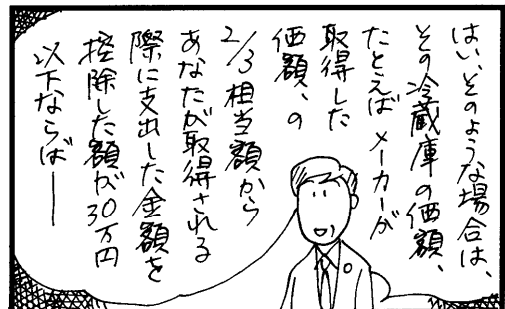 はい、そのような場合は、
その冷蔵庫の価額、
たとえばメーカーが
取得した
価額、の
2/3相当額から
あなたが取得される
際に支出した金額を
控除した額が30万円
以下ならば──